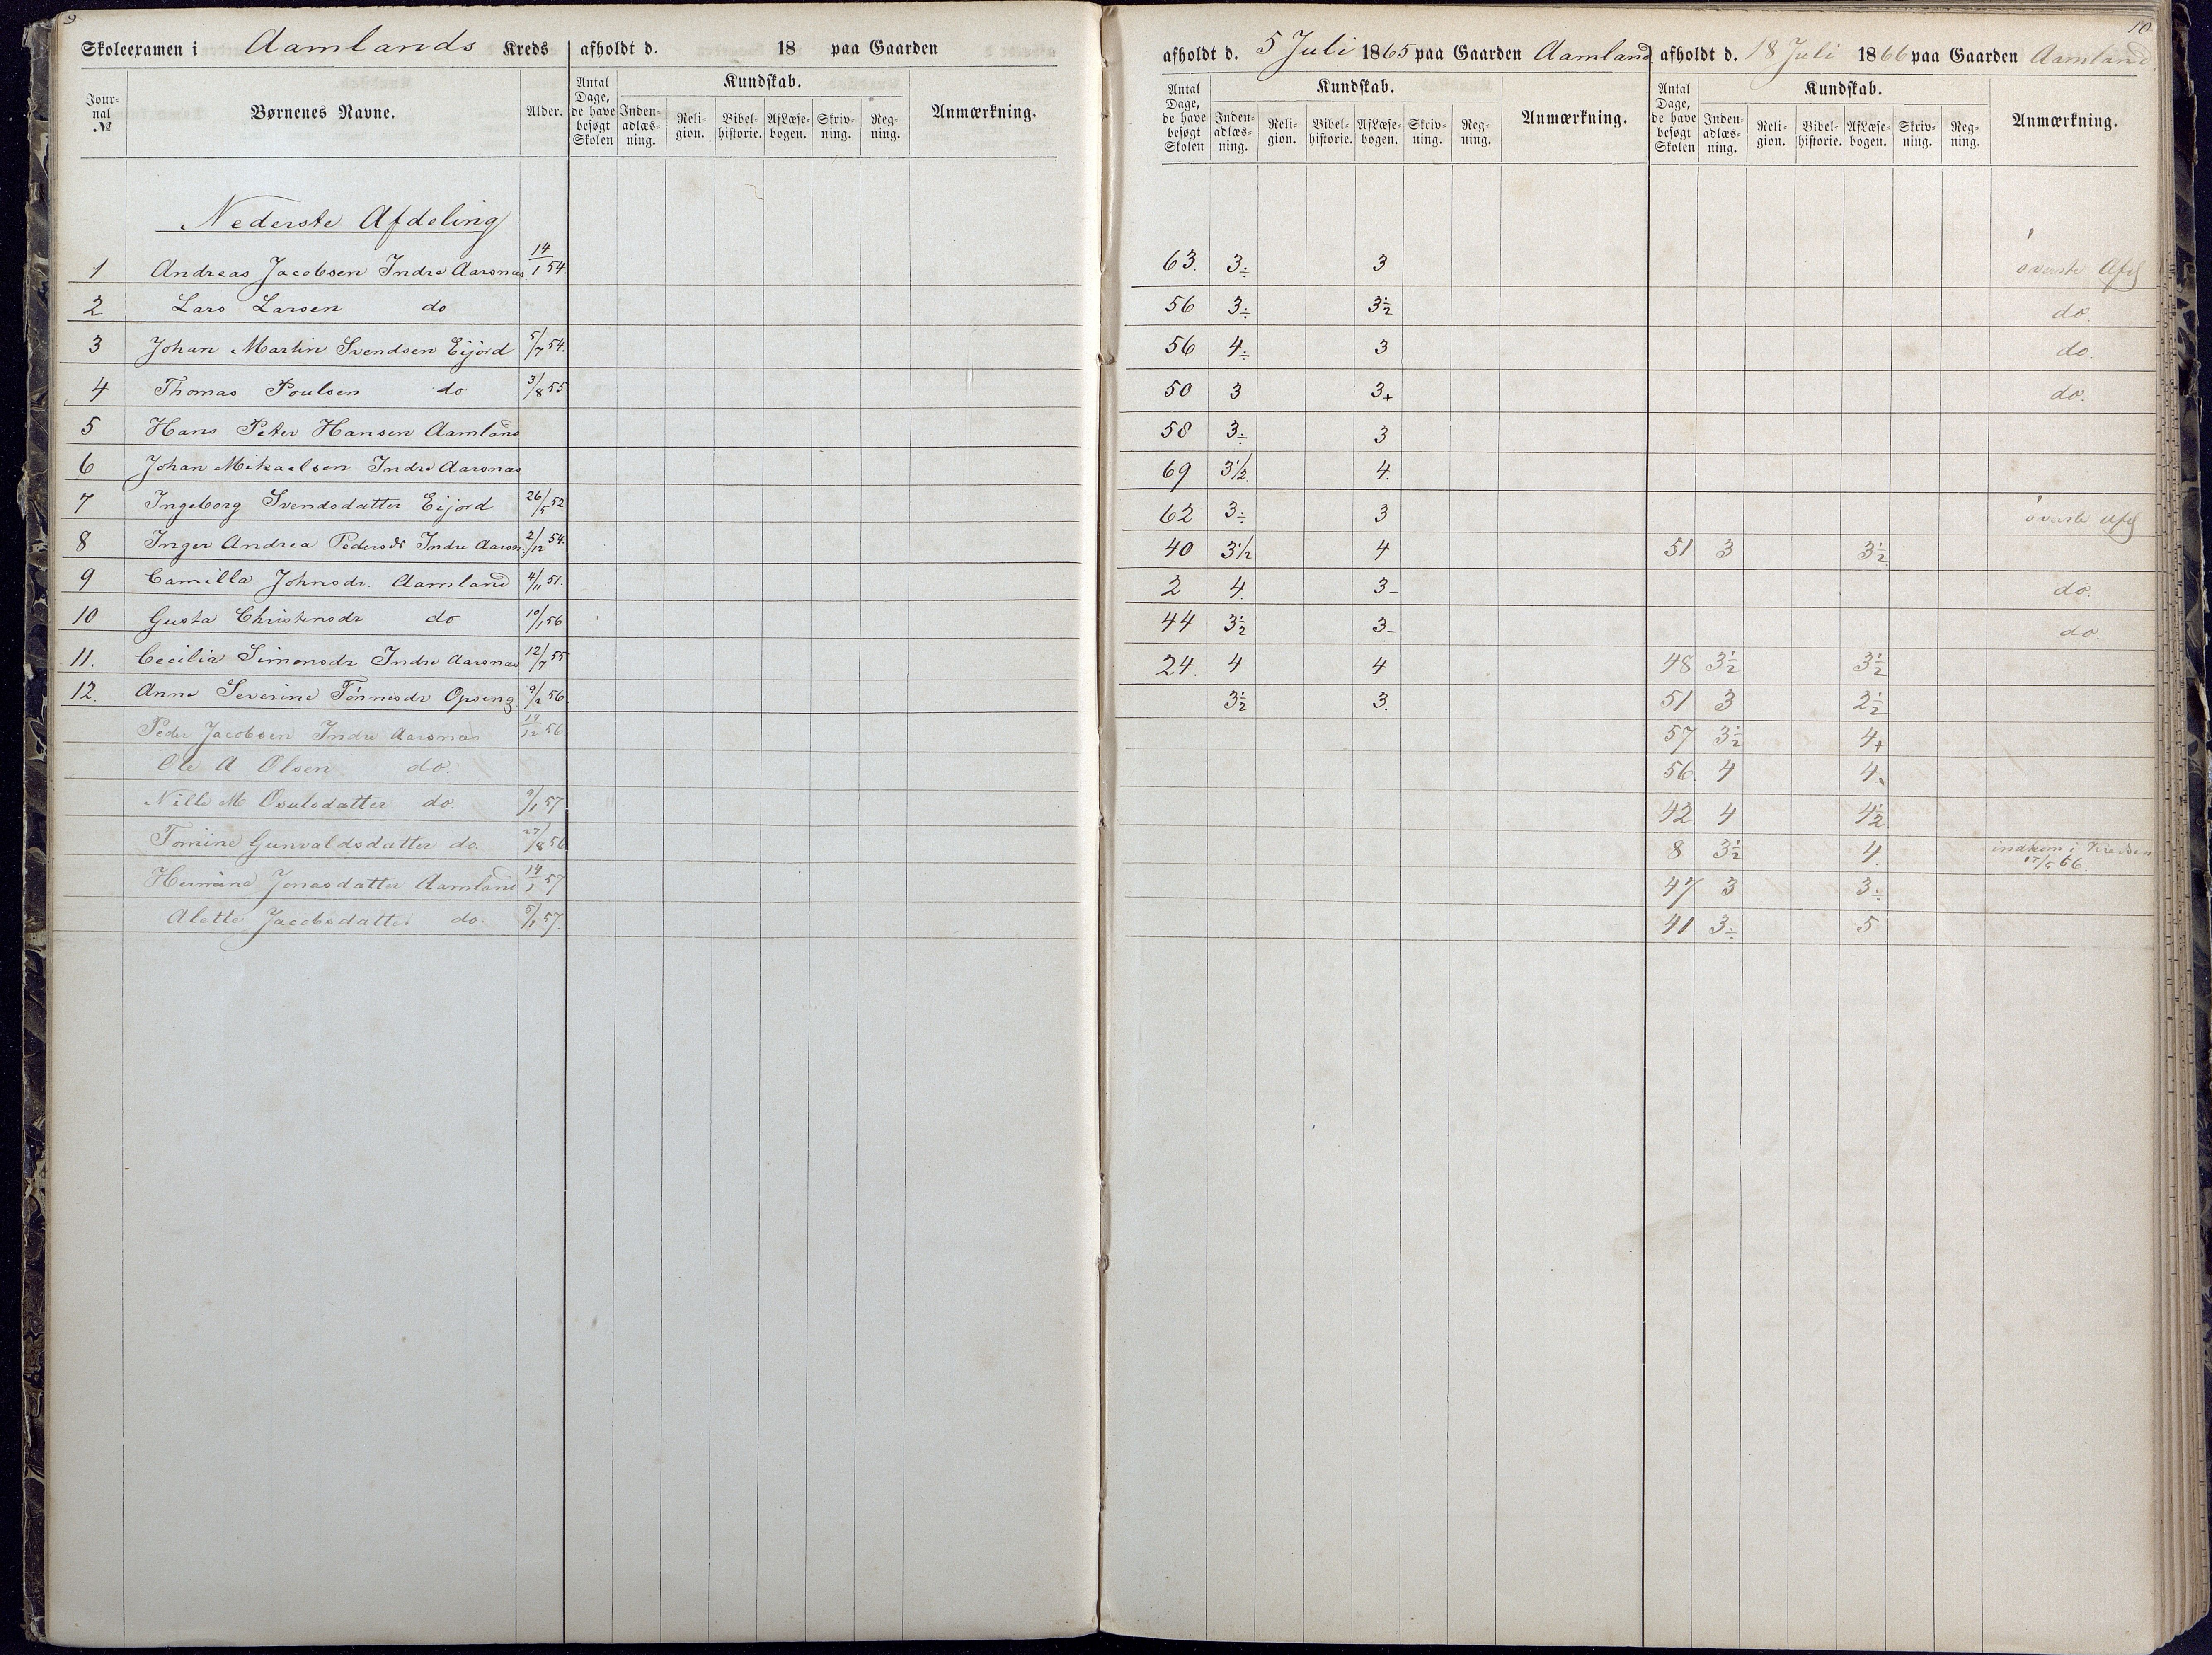 9
Skoleexamen i Aamlands Kreds afholdt d. 18 paa Gaarden
Jour-nal № Børnenes Navne. Alder. Antal Dage, de have besøgt Skolen Kundskab. Inden-adlæs-ning. Reli-gion. Bibel-historie. Af Læse-bogen. Skriv-ning. Reg-ning. Anmærkning.
Nederste Afdeling
1 Andreas Jacobsen Indre Aarsnæs 14/1 54.
2 Lars Larsen do
3 Johan Martin Svendsen Eijord 5/7 54.
4 Thomas Poulsen do 3/8 55
5 Hans Peter Hansen Aamland
6 Johan Mikaelsen Indre Aarsnæs
7 Ingeborg Svendsdatter Eijord 26/5 52
8 Inger Andrea Pedersdr Indre Aarsn. 2/12 54.
9 Camilla Johnsdr. Aamland 4/11 51.
10 Gusta Christensdr do 10/1 56
11. Cecilia Simonsdr Indre Aarsnæs 12/7 55
12. Anne Severine Tönnesdr Opseng 9/2 56.
Peder Jacobsen Indre Aarsnæs 19/12 56
Ole A Olsen do.
Nille M Osulsdatter do. 9/1 57
Tomine Gunvaldsdatter do. 27/8 56
Hermine Jonasdatter Aamland 14/1 57
Alette Jacobsdatter do. 5/1 57.
10
afholdt d. 5 Juli 1865 paa Gaarden Aamland. afholdt d. 18 Juli 1866 paa Gaarden Aamland.
Antal Dage, de have besøgt Skolen Kundskab. Inden-adlæs-ning. Reli-gion. Bibel-historie. Af Læse-bogen. Skriv-ning. Reg-ning. Anmærkning. Antal Dage, de have besøgt Skolen Kundskab. Inden-adlæs-ning. Reli-gion. Bibel-historie. Af Læse-bogen. Skriv-ning. Reg-ning. Anmærkning.
63. 3÷ 3 överste Afd
56 3÷ 3½ do.
56 4÷ 3 do.
50 3 3+ do.
58 3÷ 3
69 3½. 4.
62 3÷ 3 överste Afd
40 3½ 4 51 3 3½
2 4. 3- do.
44 3½ 3- do.
24. 4 4 48 3½ 3½
3½ 3. 51 3 2½
57 3½ 4+
56. 4 4
42 4 4½
8 3½ 4. indkom i Kredsen
17/5 66.
47 3 3÷
41 3÷ 5